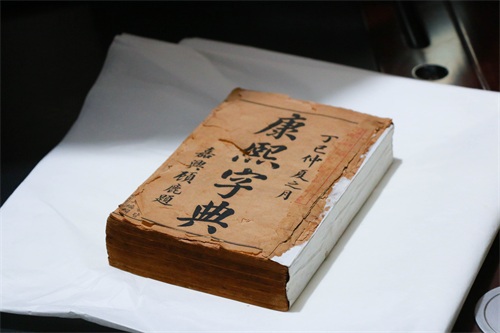 丁巳仲夏之月
康熙字典
嘉興鹿題